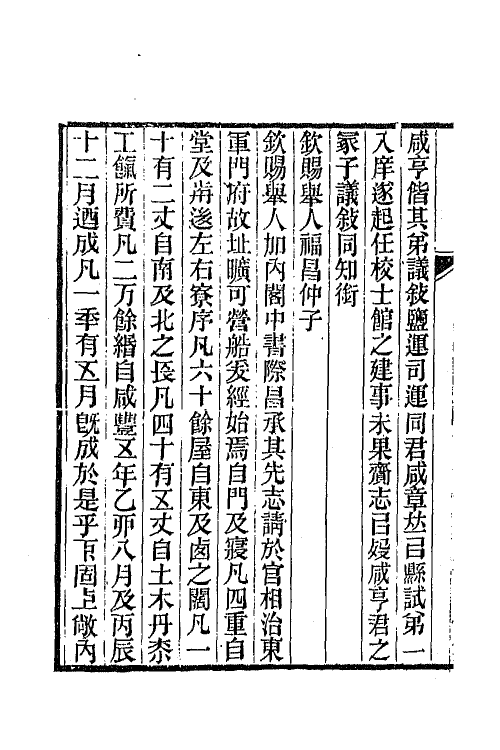 咸亨偕其弟議敍鹽運司運同君咸章竝㠯縣試第一
入庠遂起任校士館之建事未果齎志㠯歿咸亨君之
冡子議敍同知銜
欽賜舉人福昌仲子
欽賜舉人加內閣中書際昌承其先志請於官相治東
軍門府故址曠可營船爰經始焉自門及寢凡四重自
堂及㫄遂左右寮序凡六十餘屋自東及鹵之闊凡一
十有二丈自南及北之長凡四十有㐅丈自土木丹桼
工𩜁所費凡二万餘緡自咸豐㐅年乙丣八月及丙辰
十二月迺成凡一秊有㐅月旣成於是乎下固上敞內